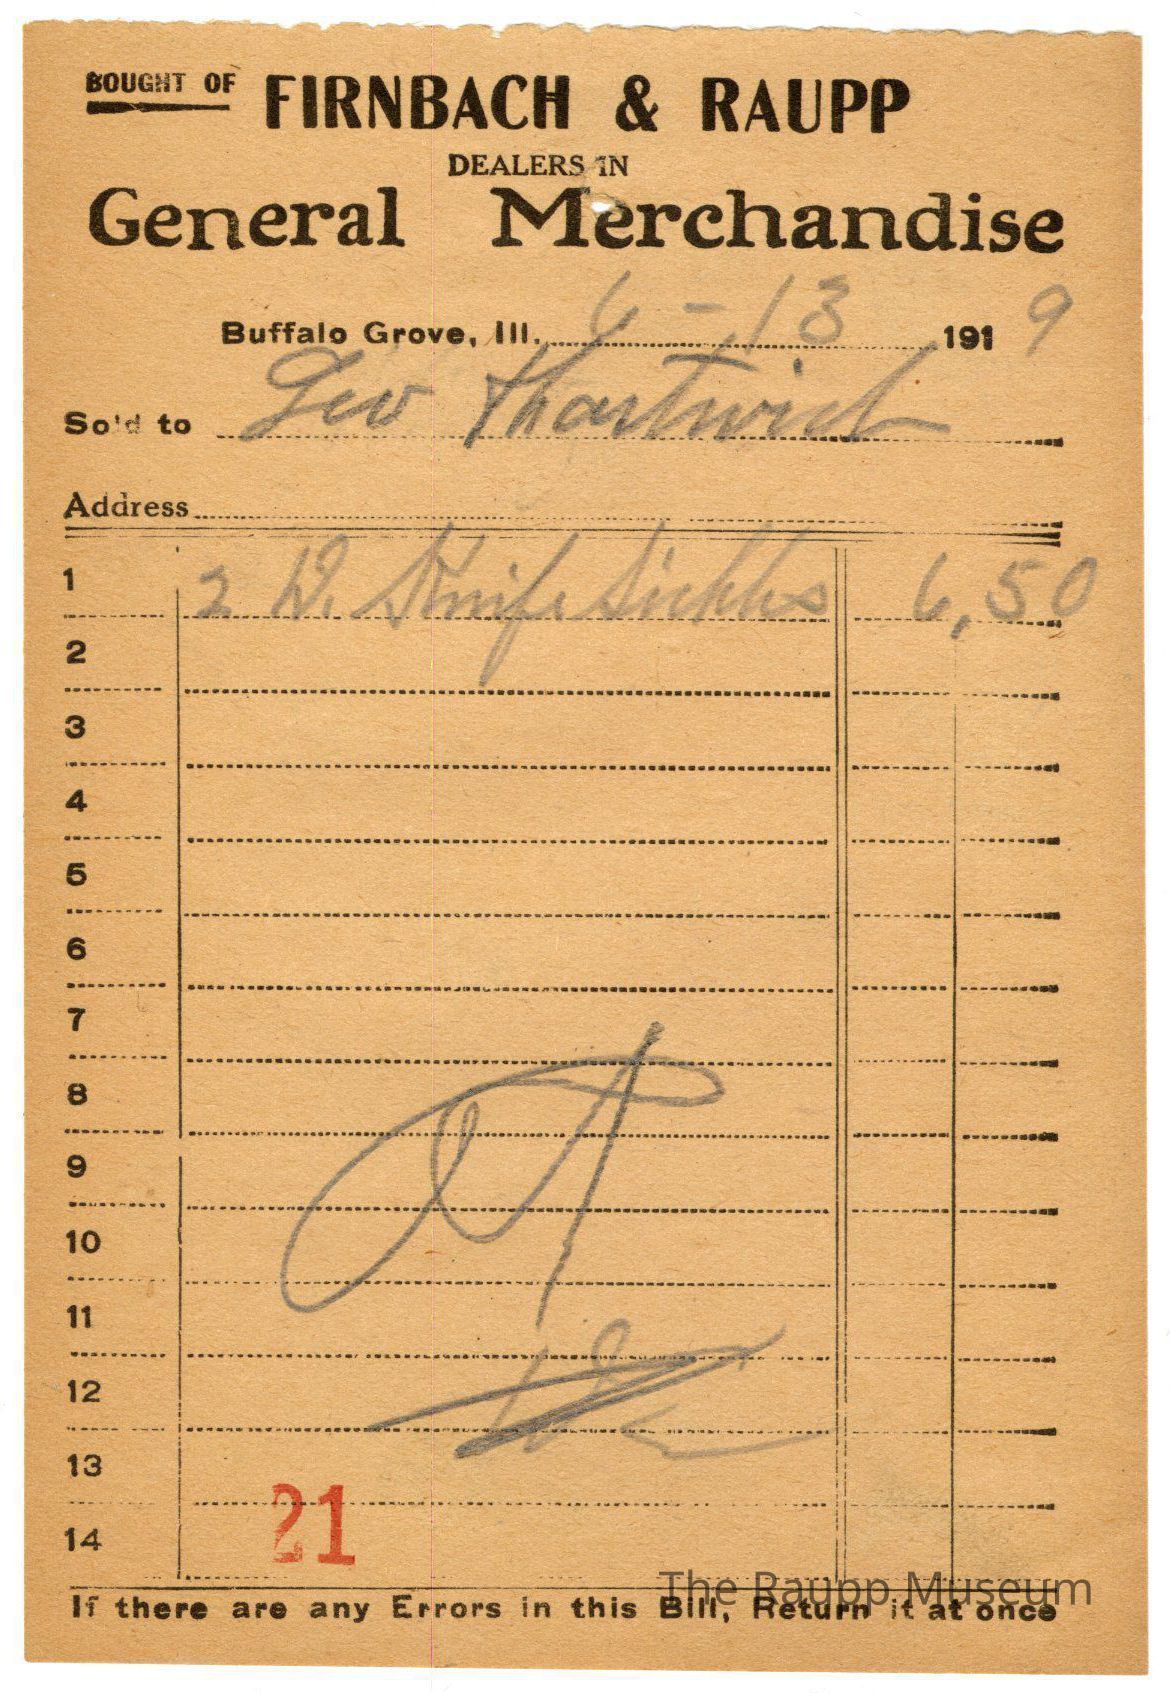 BOUGHT OF FIRNBACH & RAUPP
DEALERS IN
General Merchandise
Buffalo Grove, Ill. 6-13 1919
Sold to Geo Hartwich
Address
1 2 D. Knife Sickles 6,50
2
3
4
5
6
7
8
9
10
11
12
13
21
14
The Raupp Museum
If there are any Errors in this Bill, Return it at once